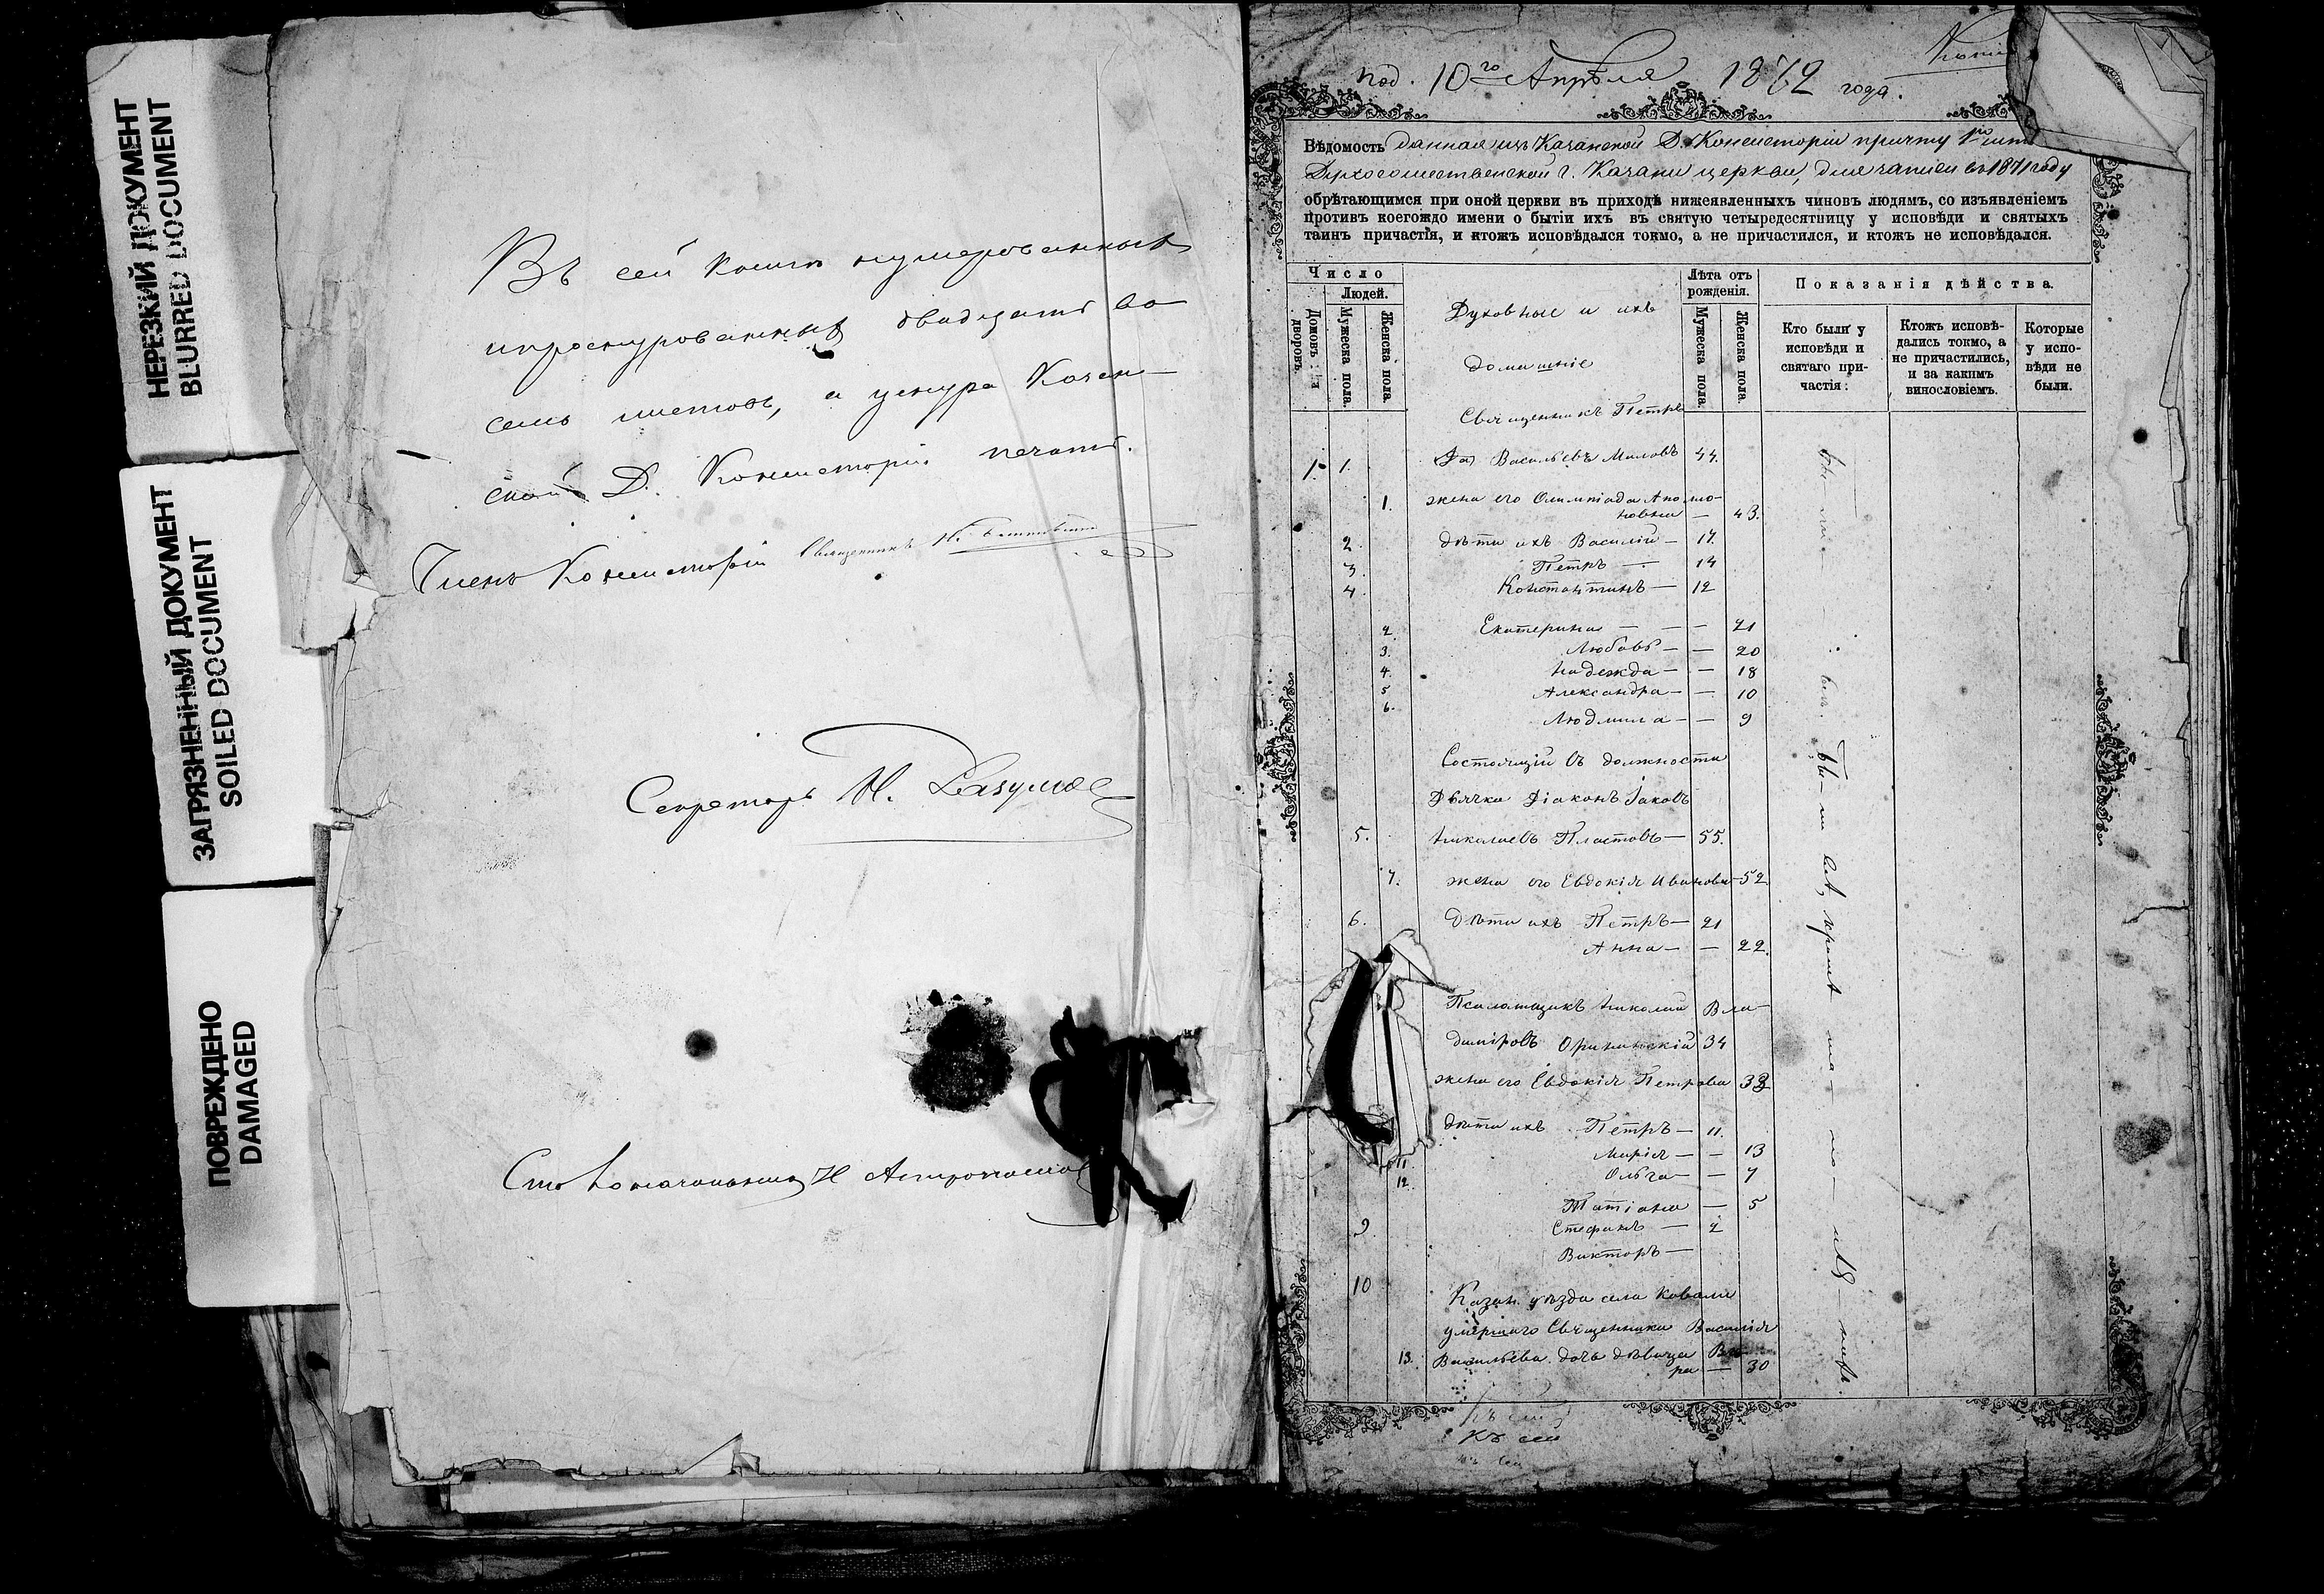 НЕРЕЗКИЙ ДОКУМЕНТ
BLURRED DOCUMENT
ЗАГРЯЗНЕННЫЙ ДОКУМЕНТ
SOILED DOCUMENT
ПОВРЕЖДЕНО
DAMAGED
Въ сей книгѣ нумерованныхъ
и прошнурованныхъ двадцать во-
семь листовъ, а у шнура Казан-
ской Д. Консисторіи печать.
Членъ Консисторіи Священникъ
Секретарь И.
Столоначальникъ Н
под. 10го Апрѣля 1872 года.
Копія
Вѣдомость данная изъ Казанской Д. Консисторіи причту
Духосошественской г. Казани церкви, для записи въ 1871 году
обрѣтающимся при оной церкви въ приходѣ нижеявленныхъ чиновъ людямъ, со изъявленіемъ
противъ коегождо имени о бытіи ихъ въ святую четыредесятницу у исповѣди и святыхъ
таинъ причастія, и ктожъ исповѣдался токмо, а не причастился, и ктожъ не исповѣдался.
Число
Людей.
Домовъ или дворовъ.
Мужеска пола.
Женска пола.
Духовные и ихъ
домашніе
Лѣта отъ рожденія.
Мужеска пола.
Женска пола.
Показанія дѣйства.
Кто были у исповѣди и святаго причастія:
Ктожъ исповѣдались токмо, а не причастились, и за какимъ винословіемъ.
Которые у исповѣди не были.
Священникъ Петръ
1. 1. Васильевъ Миловъ 44.
1. жена его Олимпіада Аполло-
новна — 43.
2. дѣти ихъ Василій — 17.
3. Петръ — 14
4. Константинъ — 12
2. Екатерина — — 21
3. Любовь — — 20
4. Надежда — — 18
5. Александра — — 10
6. Людмила — — 9
Состоящій въ должности
Дьячка Діаконъ Іаковъ
5. Николаевъ Пластовъ — 55.
7. жена его Евдокія Иванова — 52.
6. дѣти ихъ Петръ — 21
Анна — — 22.
Псаломщикъ Николай Вла-
диміровъ 34
жена его Евдокія Петрова 33
дѣти ихъ Петръ — 11.
11. Марія — — 13
12. Ольга — — 7
Татіана — 5
9. Стефанъ — 2
Викторъ —
10
Казан. уѣзда села Ковали
умершаго Священника Василія
13. Васильева дочь дѣвица Вѣ-
ра — 30
Бы- ли всѣ, кромѣ
къ сей